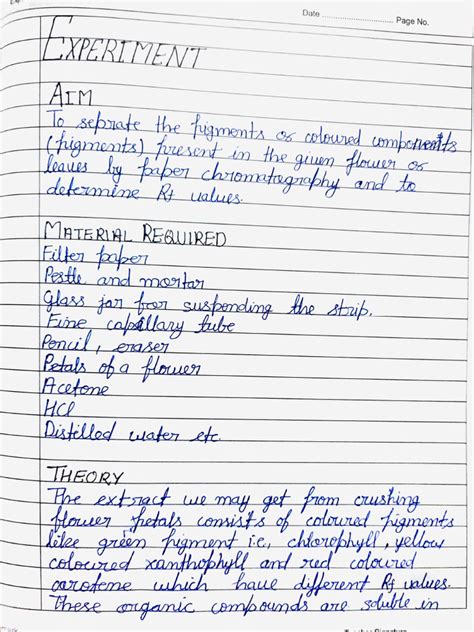 Date
Page No.
EXPERIMENT
AIM
To seprate the pigments or coloured components
(pigments) present in the given flower or
leaves by paper chromatography and to
determine Rf values.
MATERIAL REQUIRED
Filter paper
Pestle and mortar
Glass jar for suspending the strip.
Fine capillary tube
Pencil, eraser
Petals of a flower
Acetone
HCl
Distilled water etc.
THEORY
The extract we may get from crushing
flower petals consists of coloured pigments
like green pigment i.e., chlorophyll, yellow
coloured xanthophyll and red coloured
carotene which have different Rf values.
These organic compounds are soluble in